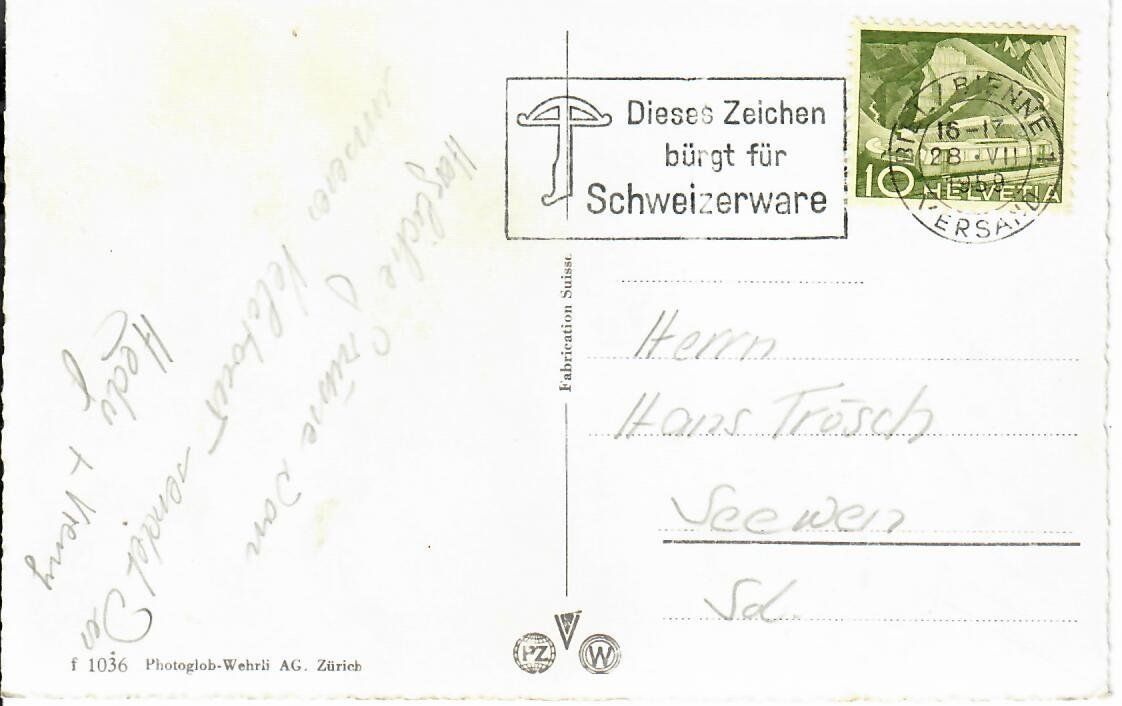 Dieses Zeichen
bürgt für
Schweizerware
BIEL / BIENNE 1
16-17
28.VII
1959
VERSAND
10 HELVETIA
Herzliche Grüsse von
unserer Velotour
sendet Dir
Hedy
+ Vreny
Fabrication Suisse
Herrn
Hans Trösch
Seewen
Sol.
PZ
W
f 1036 Photoglob-Wehrli AG. Zürich